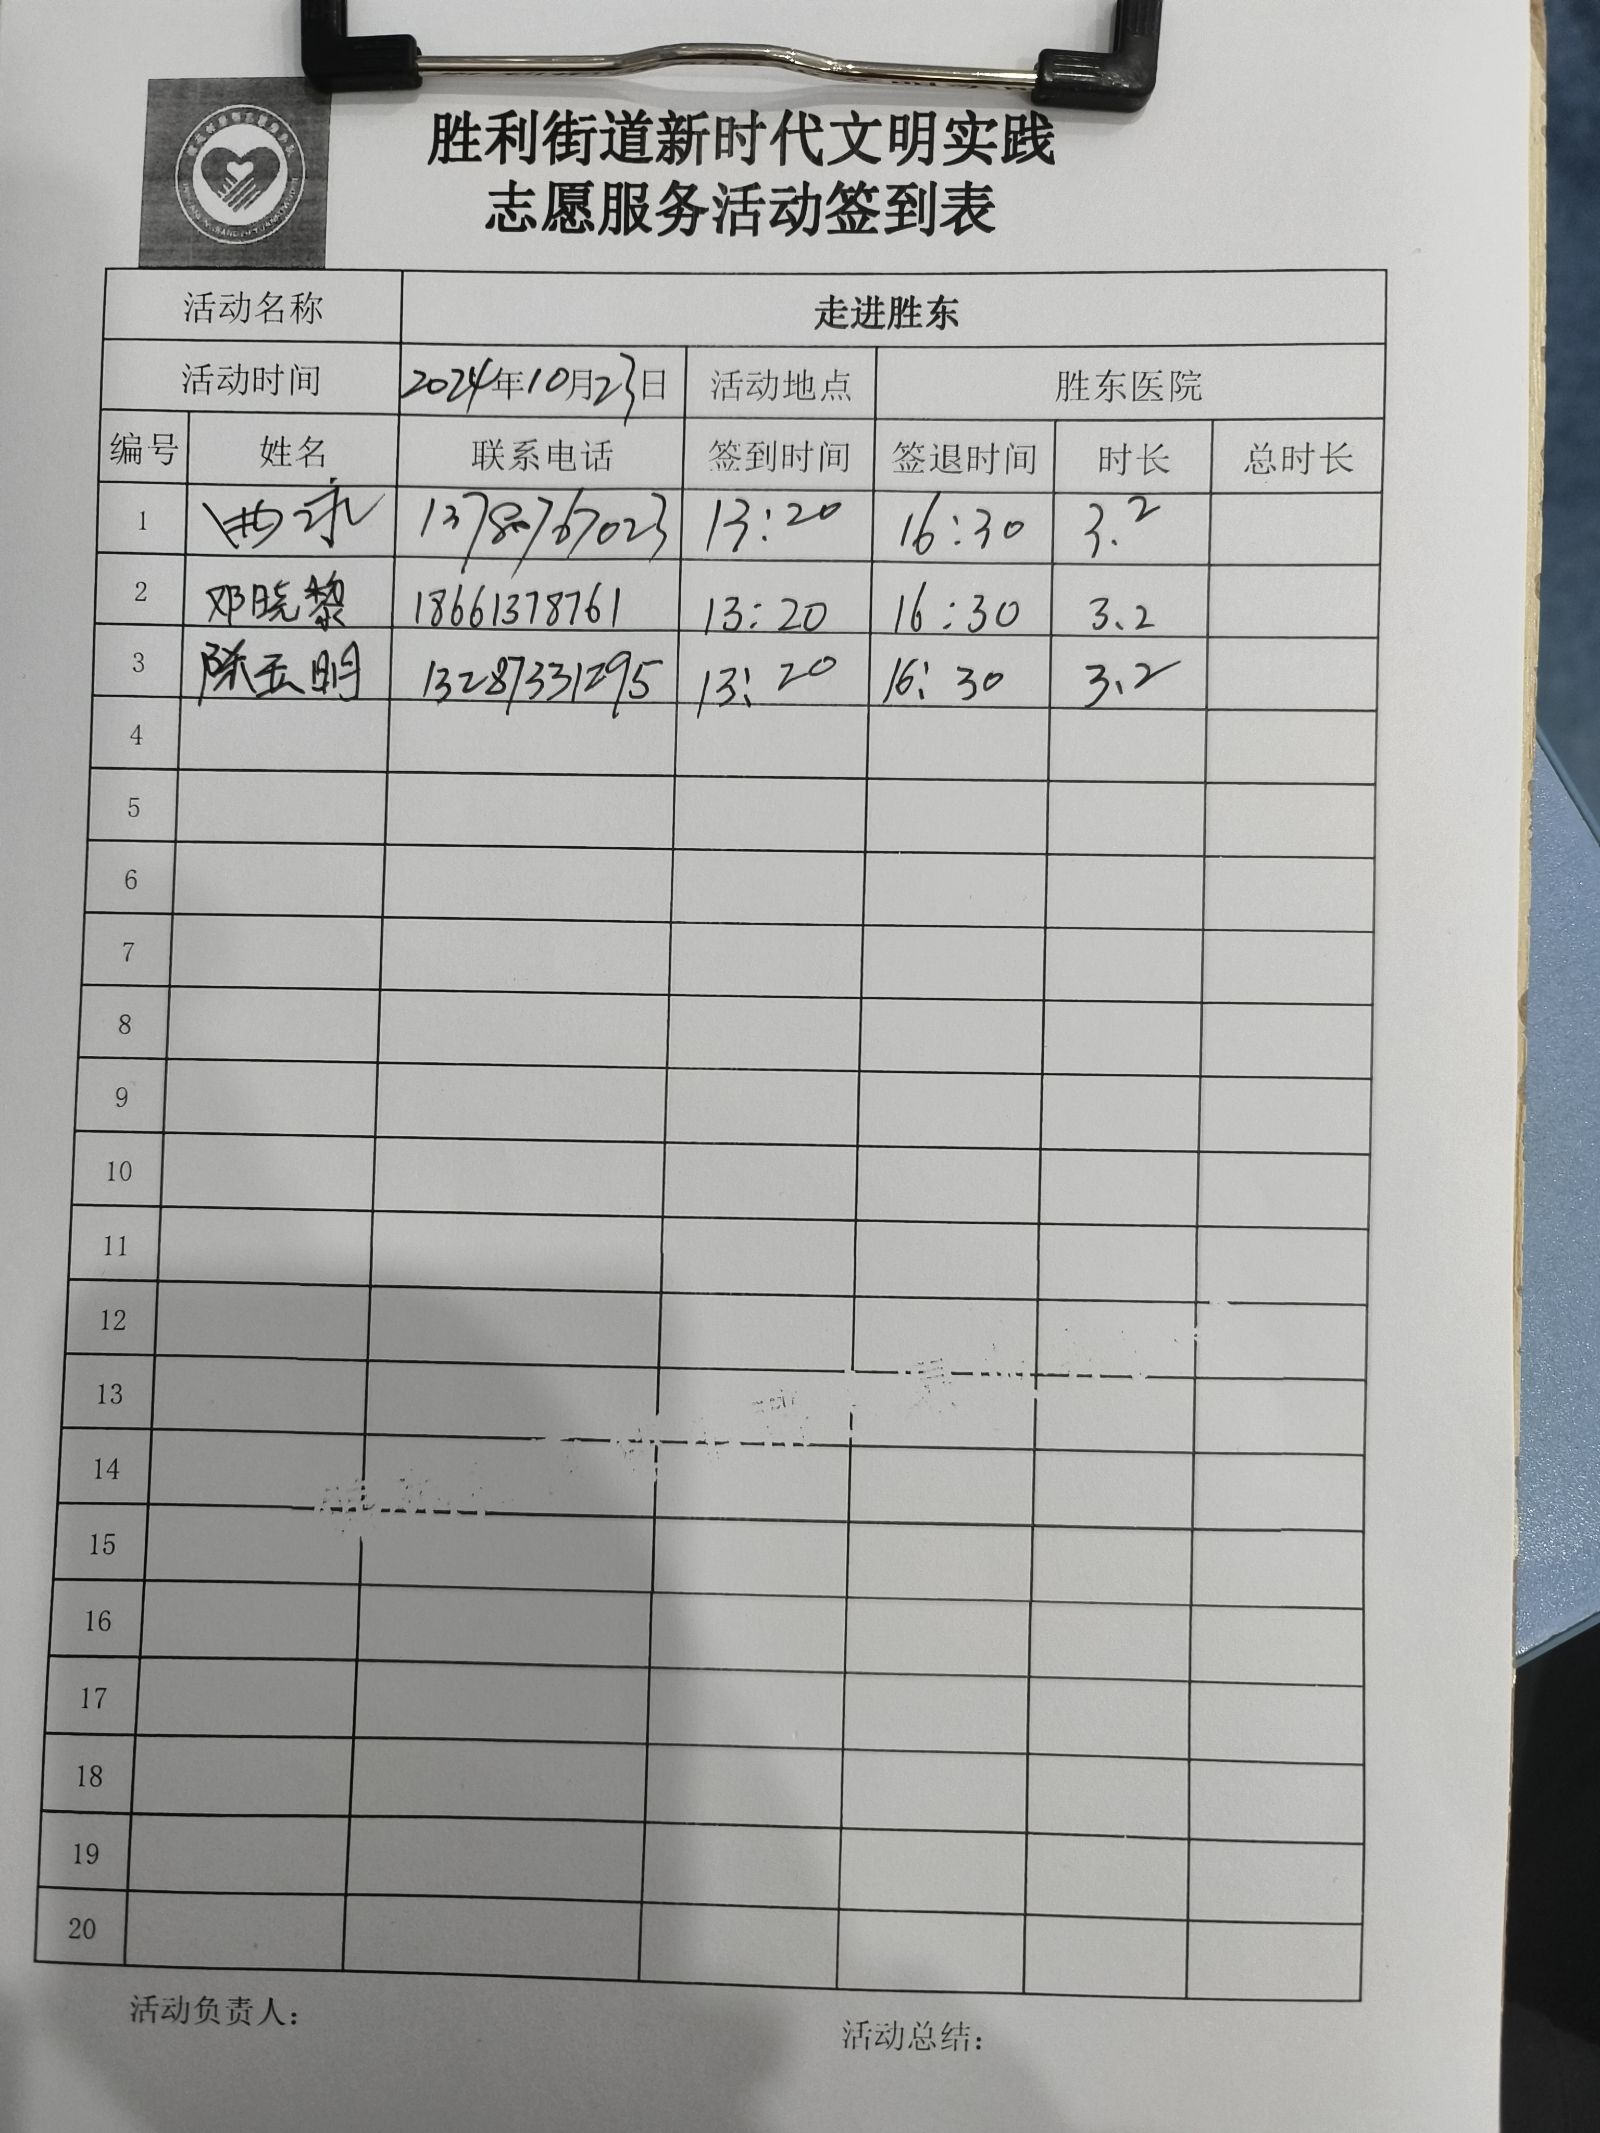 胜利街道新时代文明实践
志愿服务活动签到表
活动名称 走进胜东
活动时间 2024年10月23日 活动地点 胜东医院
编号 姓名 联系电话 签到时间 签退时间 时长 总时长
1 曲永 13780767023 13:20 16:30 3.2
2 邓晓黎 18661378761 13:20 16:30 3.2
3 陈玉明 13287331295 13:20 16:30 3.2
4
5
6
7
8
9
10
11
12
13
14
15
16
17
18
19
20
活动负责人:
活动总结: